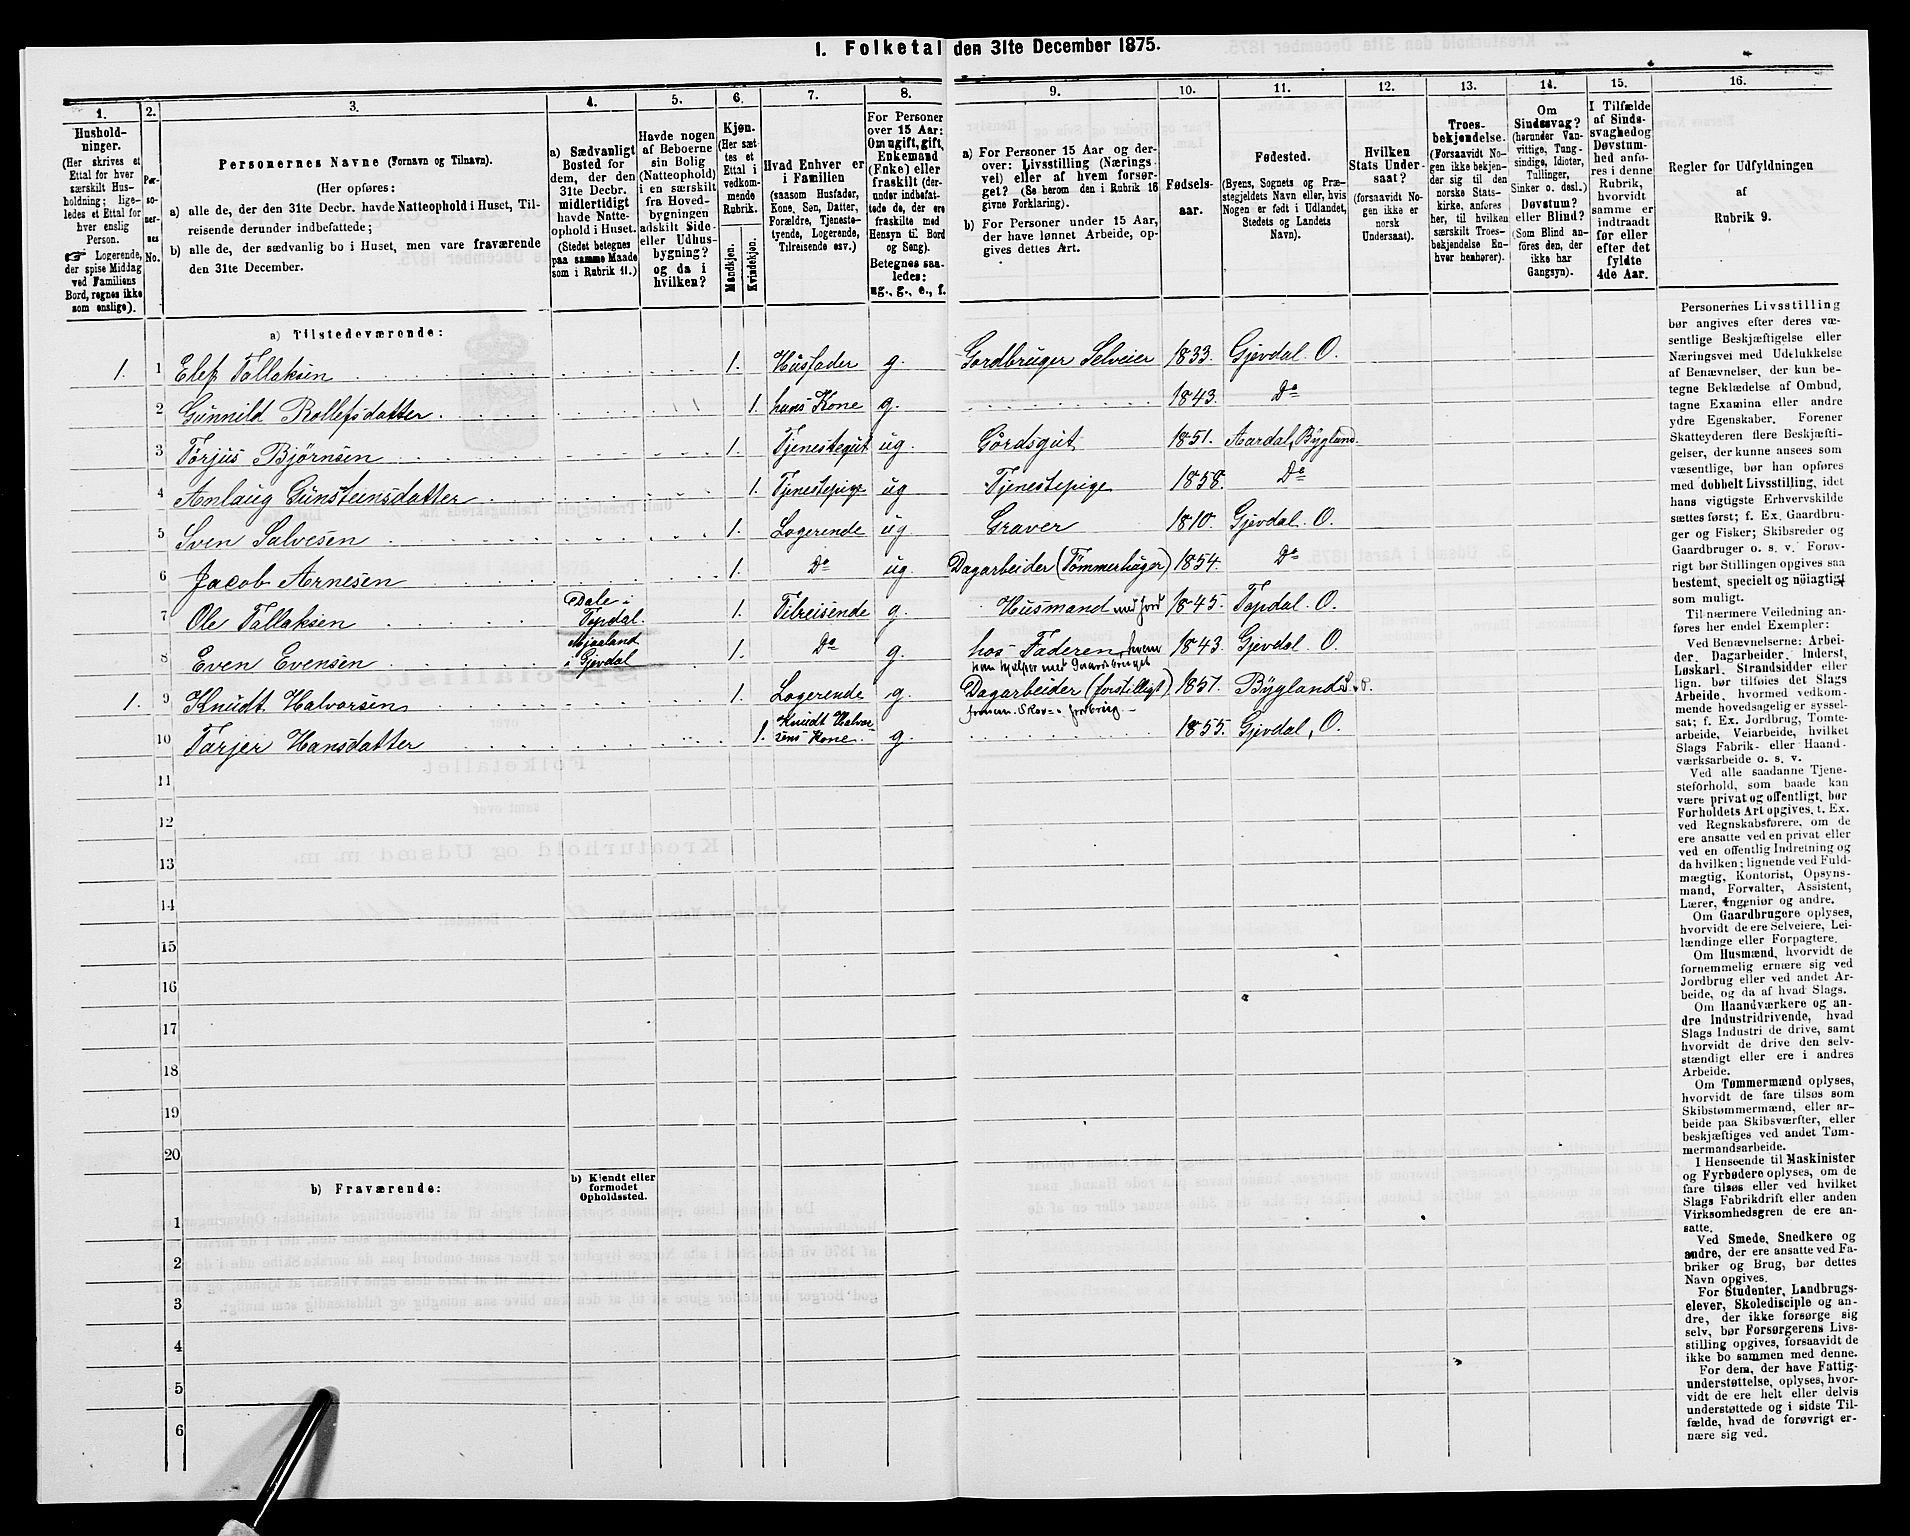 1. Folketal den 31te December 1875.
1. 2. 3. 4. 5. 6. 7. 8. 9. 10. 11. 12. 13. 14. 15. 16.
Hushold-
ninger.
(Her skrives et
Ettal for hver
særskilt Hus-
holdning; lige-
ledes et Ettal for
hver enslig
Person.
☞ Logerende,
der spise Middag
ved Familiens
Bord, regnes ikke
som enslige).
Per-
so-
ner-
nes
No.
Personernes Navne (Fornavn og Tilnavn).
(Her opføres:
a) alle de, der den 31te Decbr. havde Natteophold i Huset, Til-
reisende derunder indbefattede;
b) alle de, der sædvanlig bo i Huset, men vare fraværende
den 31te December.
a) Sædvanligt
Bosted for
dem, der den
31te Decbr.
midlertidigt
havde Natte-
ophold i Huset.
(Stedet betegnes
paa samme Maade
som i Rubrik 11.)
Havde nogen
af Beboerne
sin Bolig
(Natteophold)
i en særskilt
fra Hoved-
bygningen
adskilt Side-
eller Udhus-
bygning?
og da i
hvilken?
Kjøn.
(Her sæt-
tes et
Ettal i
vedkom-
mende
Rubrik.
Mandkjøn.
Kvindekjøn.
Hvad Enhver er
i Familien
(saasom Husfader,
Kone, Søn, Datter,
Forældre, Tjeneste-
tyende, Logerende,
Tilreisende osv.)
For Personer
over 15 Aar:
Om ugift, gift,
Enkemand
(Enke) eller
fraskilt (der-
under indbefat-
tede de, der ere
fraskilte med
Hensyn til Bord
og Seng).
Betegnes saa-
ledes:
ug., g., e., f.
a) For Personer 15 Aar og der-
over: Livsstilling (Nærings-
vei) eller af hvem forsør-
get? (Se herom den i Rubrik 16
givne Forklaring).
b) For Personer under 15 Aar,
der have lønnet Arbeide, op-
gives dettes Art.
Fødsels-
aar.
Fødested.
(Byens, Sognets og Præ-
stegjeldets Navn eller, hvis
Nogen er født i Udlandet,
Stedets og Landets
Navn).
Hvilken
Stats Under-
saat?
(forsaavidt No-
gen ikke er
norsk
Undersaat).
Troes-
bekjendelse.
(Forsaavidt No-
gen ikke bekjen-
der sig til den
norske Stats-
kirke, anføres
her, til hvilken
særskilt Troes-
bekjendelse En-
hver henhører).
Om
Sindssvag?
(herunder Van-
vittige, Tung-
sindige, Idioter,
Tullinger,
Sinker o. desl.)
Døvstum?
eller Blind?
(Som Blind an-
føres den, der
ikke har
Gangsyn).
I Tilfælde
af Sinds-
svaghed og
Døvstum-
hed anfø-
res i denne
Rubrik,
hvorvidt
samme er
indtraadt
før eller
efter det
fyldte
4de Aar.
Regler for Udfyldningen
af
Rubrik 9.
a) Tilstedeværende:
1. 1 Elef Tollaksen 1. Husfader g. Gordbruger Selveier 1833. Gjevdal. O.
2 Gunnild Rollefsdatter. 1. hans Kone g. 1843. Do
3 Torjus Bjørnsen 1. Tjenestegut ug. Gordsgut 1851. Aardal, Bygland.
4 Anlaug Gunsteinsdatter 1. Tjenestepige ug Tjenestepige 1858. Do
5 Sven Salvesen 1. Logerende ug Graver 1810. Gjevdal. O.
6 Jacob Arnesen 1. Do ug. Dagarbeider (Tømmerhuger) 1854. Do
7 Ole Tallaksen Dale i
Topdal. 1. Tilreisende g. Husmand med Jord 1845. Topdal. O.
8 Even Evensen Mjaaland
i Gjevdal 1. Do g. hos Faderen, hvem
han hjelper met Gaardsbruget 1843. Gjevdal O.
1. 9 Knudt Halvorsen 1. Logerende g. Dagarbeider (forskilligt)
1851. Bygland S. P.
10 Tarjer Hansdatter 1. Knudt Halvor-
sens Kone. g. 1855. Gjevdal, O.
11
12
13
14
15
16
17
18
19
20
b) Fraværende:
b) Kjendt eller
formodet
Opholdssted.
1
2
3
4
5
6
Personernes Livsstilling
bør angives efter deres væ-
sentlige Beskjæftigelse eller
Næringsvei med Udelukkelse
af Benævnelser, der kun be-
tegne Beklædelse af Ombud,
tagne Examina eller andre
ydre Egenskaber. Forener
Skatteyderen flere Beskjæfti-
gelser, der kunne ansees som
væsentlige, bør han opføres
med dobbelt Livsstilling, idet
hans vigtigste Erhvervskilde
sættes først; f. Ex. Gaardbru-
ger og Fisker; Skibsreder og
Gaardbruger o. s. v. Forøv-
rigt bør Stillingen opgives saa
bestemt, specielt og nøiagtigt
som muligt.
Til nærmere Veiledning an-
føres her endel Exempler:
Ved Benævnelserne: Arbei-
der, Dagarbeider, Inderst,
Løskarl, Strandsidder eller
lign. bør tilføies det Slags
Arbeide, hvormed vedkom-
mende hovedsagelig er syssel-
sat; f. Ex. Jordbrug, Tomte-
arbeide, Veiarbeide, hvilket
Slags Fabrik- eller Haand-
værksarbeide o. s. v.
Ved alle saadanne Tjene-
steforhold, som baade kan
være privat og offentligt, bør
Forholdets Art opgives, t. Ex.
ved Regnskabsførere, om de
ere ansatte ved en privat eller
ved en offentlig Indretning og
da hvilken; lignende ved Fuld-
mægtig, Kontorist, Opsyns-
mand, Forvalter, Assistent,
Lærer, Ingeniør og andre.
Om Gaardbrugere oplyses,
hvorvidt de ere Selveiere, Lei-
lændinge eller Forpagtere.
Om Husmænd, hvorvidt de
fornemmelig ernære sig ved
Jordbrug eller ved andet Ar-
beide, og da af hvad Slags.
Om Haandværkere og an-
dre Industridrivende, hvad
Slags Industri de drive, samt
hvorvidt de drive den selv-
stændigt eller ere i andres
Arbeide.
Om Tømmermænd oplyses,
hvorvidt de fare tilsøs som
Skibstømmermænd, eller ar-
beide paa Skibsværfter, eller
beskjæftiges ved andet Tøm-
mermandsarbeide.
I Henseende til Maskinister
og Fyrbødere oplyses, om de
fare tilsøs eller ved hvilket
Slags Fabrikdrift eller anden
Virksomhedsgren de ere an-
satte.
Ved Smede, Snedkere og
andre, der ere ansatte ved Fa-
briker og Brug, bør dettes
Navn opgives.
For Studenter, Landbrugs-
elever, Skoledisciple og an-
dre, der ikke forsørge sig
selv, bør Forsørgerens Livs-
stilling opgives, forsaavidt de
ikke bo sammen med denne.
For dem, der have Fattig-
understøttelse, oplyses, hvor-
vidt de ere helt eller delvis
understøttede og i sidste Til-
fælde, hvad de forøvrigt er-
nære sig ved.